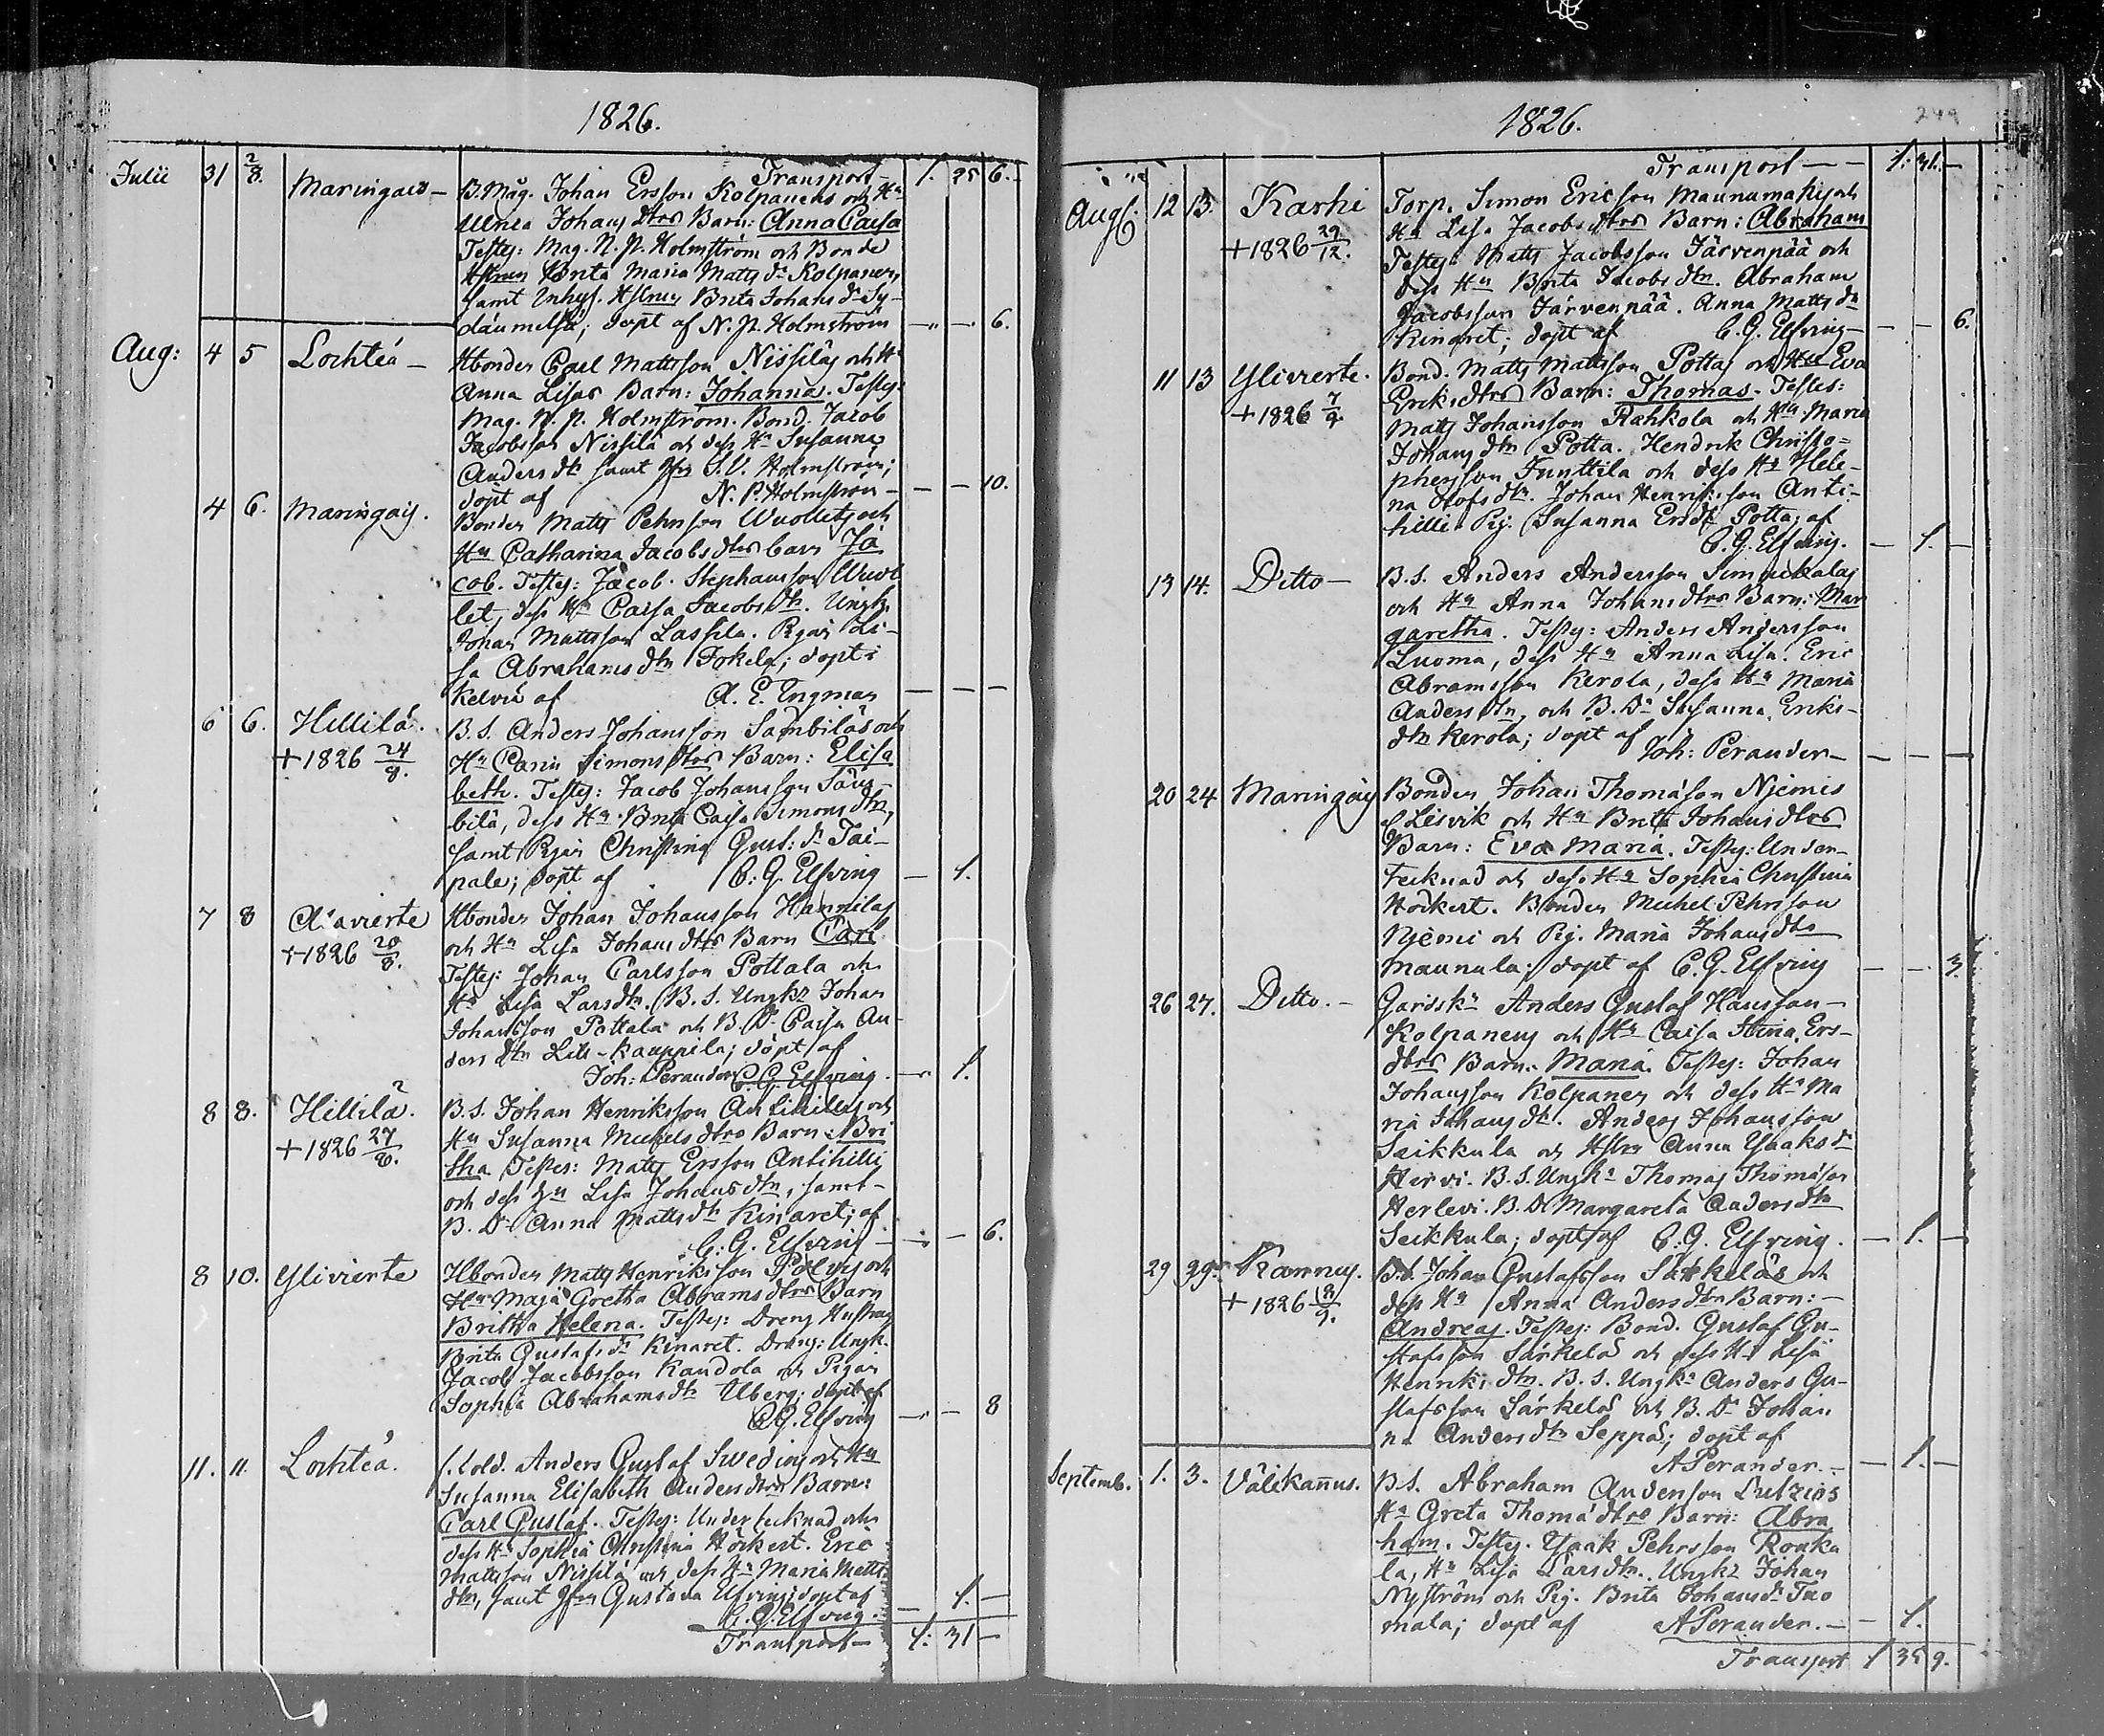 1826.
Transport – 1. 25 6.
Julii 31 2/8. Maringais – B. Måg. Johan Ersson Kolpanens och Hu
Ulrica Johans dtrs Barn: Anna Caisa
Testes: Mag. N. P. Holmström och Bonde
Hstrun Brita Maria Matts dr Kolpanen,
samt Inhys. Hstrun Brita Johans dr Sy-
däumelsä; döpt af N. P. Holmström – – 6.
Aug: 4 5 Lochteå – Hbonden Carl Mattsson Nissiläs och Hu
Anna Lisas Barn: Johanna. Testes:
Mag. N. P. Holmström. Bond. Jacob
Jacobsson Nissilä och dess Hu Susanna
Anders dtr samt Jfru S. V. Holmström;
döpt af N. P. Holmström – – – 10.
4 6. Maringais. Bonden Matts Pehrsson Wuollets och
Hu Catharina Jacobs dtrs barn Ja
cob. Testes: Jacob Stephansson Wuol
let, dess Hu Caisa Jacobs dtr. Ungk.
Johan Mattsson Lassila. Pigan Li-
sa Abrahams dtr Jokela; döpt i
Kelviå af A. E. Engman – – –
6 6. Hillilä. B. S. Anders Johansson Sämbiläs och
+ 1826 24/8. Hu Carin Simons dtrs Barn: Elisa
beth. Testes: Jacob Johansson Säm-
bilä, dess Hu Brita Caisa Simons dtr,
samt Pigan Christina Gust: dr Tai-
pale; döpt af C. G. Elfving – 1.
7 8 Alavierte Hbonden Johan Johansson Hannilas
+ 1826 20/8. och Hu Lisa Johans dtrs Barn Carl
Testes: Johan Carlsson Pottala och
Hu Lisa Larsdtr. B. S. Ungkn Johan
Johansson Pottala och B. Dr Caisa An-
ders dtr Lill-Kauppila; döpt af
Joh: Perander C. G. Elfving. – 1.
8 8. Hillilä. B. S. Johan Henriksson Antihillis och
+ 1826 27/8. Hu Susanna Michels dtrs Barn: Bri
tha Testes: Matts Ersson Antihilli
och dess Hu Lisa Johans dtr, samt –
B. Dr Anna Matts dtr Kinaret; af
C. G. Elfving – – – 6.
8 10. Ylivierte Hbonden Matts Henriksson Pölvis och
Hu Maja Gretha Abrams dtrs Barn
Britha Helena. Testes: Dreng Hustrun
Brita Gustafs dr Kinaret. Dräng: Ungk.
Jacob Jacobsson Kandola och Pigan
Sophia Abrahams dtr Uberg; döpt af
C. G. Elfving – – 8
11. 11. Lochteå. Sold. Anders Gustaf Swedings och Hu
Susanna Elisabeth Anders dtrs Barn:
Carl Gustaf. Testes: Undertecknad och
dess Hu Sophia Christina Höckert. Eric
Mattsson Nissilä och dess Hu Maria Matts
dtr, samt Jfru Gustava Elfving; döpt af
C. G. Elfving. – 1. –
Transport – 1: 31 –
1826.
249
Transport – – 1: 31. –
Aug: 12 13. Karhi Torp. Simon Ericsson Maunumäkis och
+ 1826 29/12. Hu Lisa Jacobs dtrs Barn: Abraham
Testes: Matts Jacobsson Järvenpää och
dess Hu Brita Jacobs dtr. Abraham
Jacobsson Järvenpää. Anna Matts dr
Kinaret; döpt af C. G. Elfving – – – 6.
11 13 Ylivierte. Bond. Matts Mattsson Pottas och Hu Eva
+ 1826 7/9. Eriks dtrs Barn: Thomas. Testes:
Matts Johansson Rahkola och Hu Maria
Johans dtr Potta. Hendrik Christo-
phersson Junttila och dess Hu Hele-
na Olofs dtr. Johan Henriksson Anti-
hilli. Pig. Susanna Ersdr Potta; af
C. G. Elfving. – 1. –
13 14. Ditto – B. S. Anders Andersson Simukalas
och Hu Anna Johans dtrs Barn: Mar
garetha. Testes: Anders Andersson
Luoma, dess Hu Anna Lisa. Eric
Abramsson Kerola, dess Hu Maria
Anders dtr, och B. Dr Susanna Eriks-
dtr Kerola; döpt af
Joh: Perander – – – –
20 24 Maringais Bonden Johan Thomasson Njemis
Lesvik och Hu Brita Johans dtrs
Barn: Eva Maria. Testes: Under-
tecknad och dess Hu Sophia Christina
Höckert. Bonden Michel Pehrsson
Njemi och Pig. Maria Johans dtr
Maunula; döpt af C. G. Elfving – – 3.
26 27. Ditto. – Gardskn Anders Gustaf Hansson –
Kolpanens och Hu Caisa Stina Ers-
dtrs Barn. Maria. Testes: Johan
Johansson Kolpanen och dess Hu Ma
ria Johans dtr. Anders Johansson
Seikkula och Hstru Anna Ysaks dr
Hervi. B. S. Ungkn Thomas Thomasson
Herlevi. B. D. Margareta Anders dtr
Seikkula; döpt af C. G. Elfving. – 1. –
29 29. Kannus. B. S. Johan Gustafsson Särkeläs och
+ 1826 18/9. dess Hu Anna Anders dtrs Barn: –
Andreas. Testes: Bond. Gustaf Gu-
stafsson Särkelä och dess Hu Lisa
Henriks dtr. B. S. Ungkn Anders Gu-
stafsson Särkelä och B. Dr Johan
na Anders dtr Seppä; döpt af
A Perander. – – 1. –
Septemb. 1. 3. Välikannus. B. S. Abraham Andersson
Hu Greta Thomæ dtrs Barn: Abra
ham. Testes. Ysaak Pehrsson Ronka
la, Hu Lisa Lars dtr. Ungkn Johan
Nyström och Pig. Brita Johans dr Tuo
mala; döpt af A Perander. – – 1.
Transport 1 35 9.